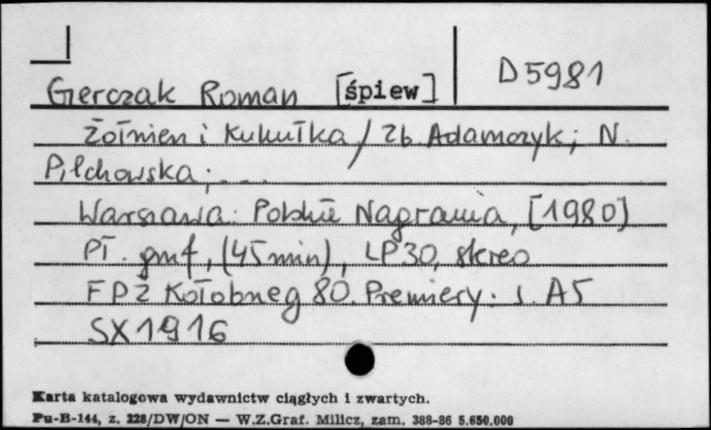 Gerczak Roman [śpiew] D5981
Żołnierz i kukułka / Zb. Adamczyk; N.
Pilchowska; ...
Warszawa: Polskie Nagrania, [1980]
Pł. gmf, (45 min), LP30, stereo
FPŻ Kołobrzeg 80. Premiery. s. A5
SX1916
Karta katalogowa wydawnictw ciągłych i zwartych.
Pu-B-144, z. 228/DW/ON — W.Z.Graf. Milicz, zam. 388-86 5.650.000